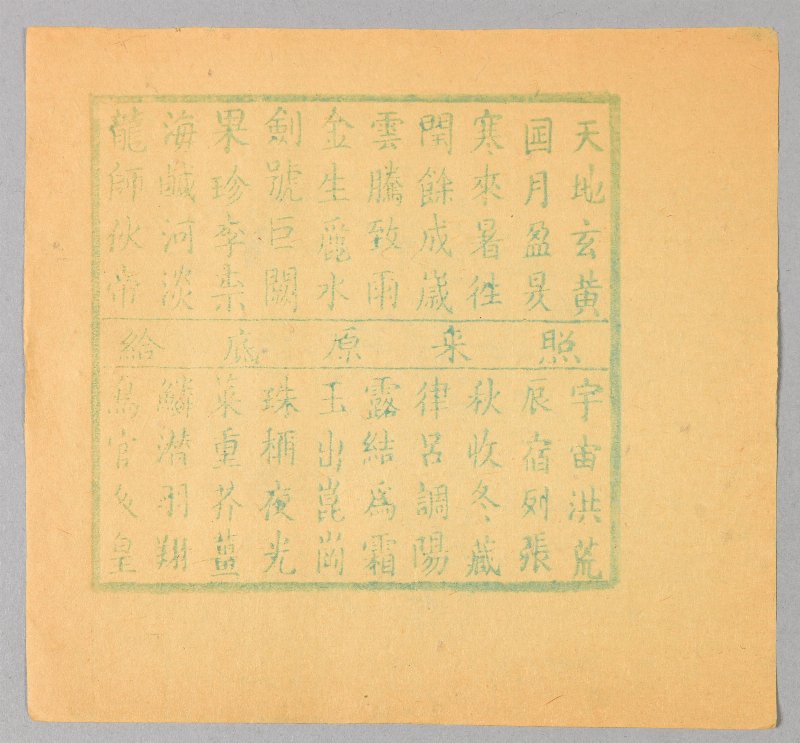 天地玄黄
囯月盈昃
寒來暑往
閏餘成歲
雲騰致雨
金生麗水
劍號巨闕
果珍李柰
海鹹河淡
龍師伙帝
照来原底給
宇宙洪荒
辰宿列張
秋收冬藏
律呂調陽
露結為霜
玉出崑崗
珠稱夜光
菜重芥薑
鱗潜羽翔
鳥官人皇